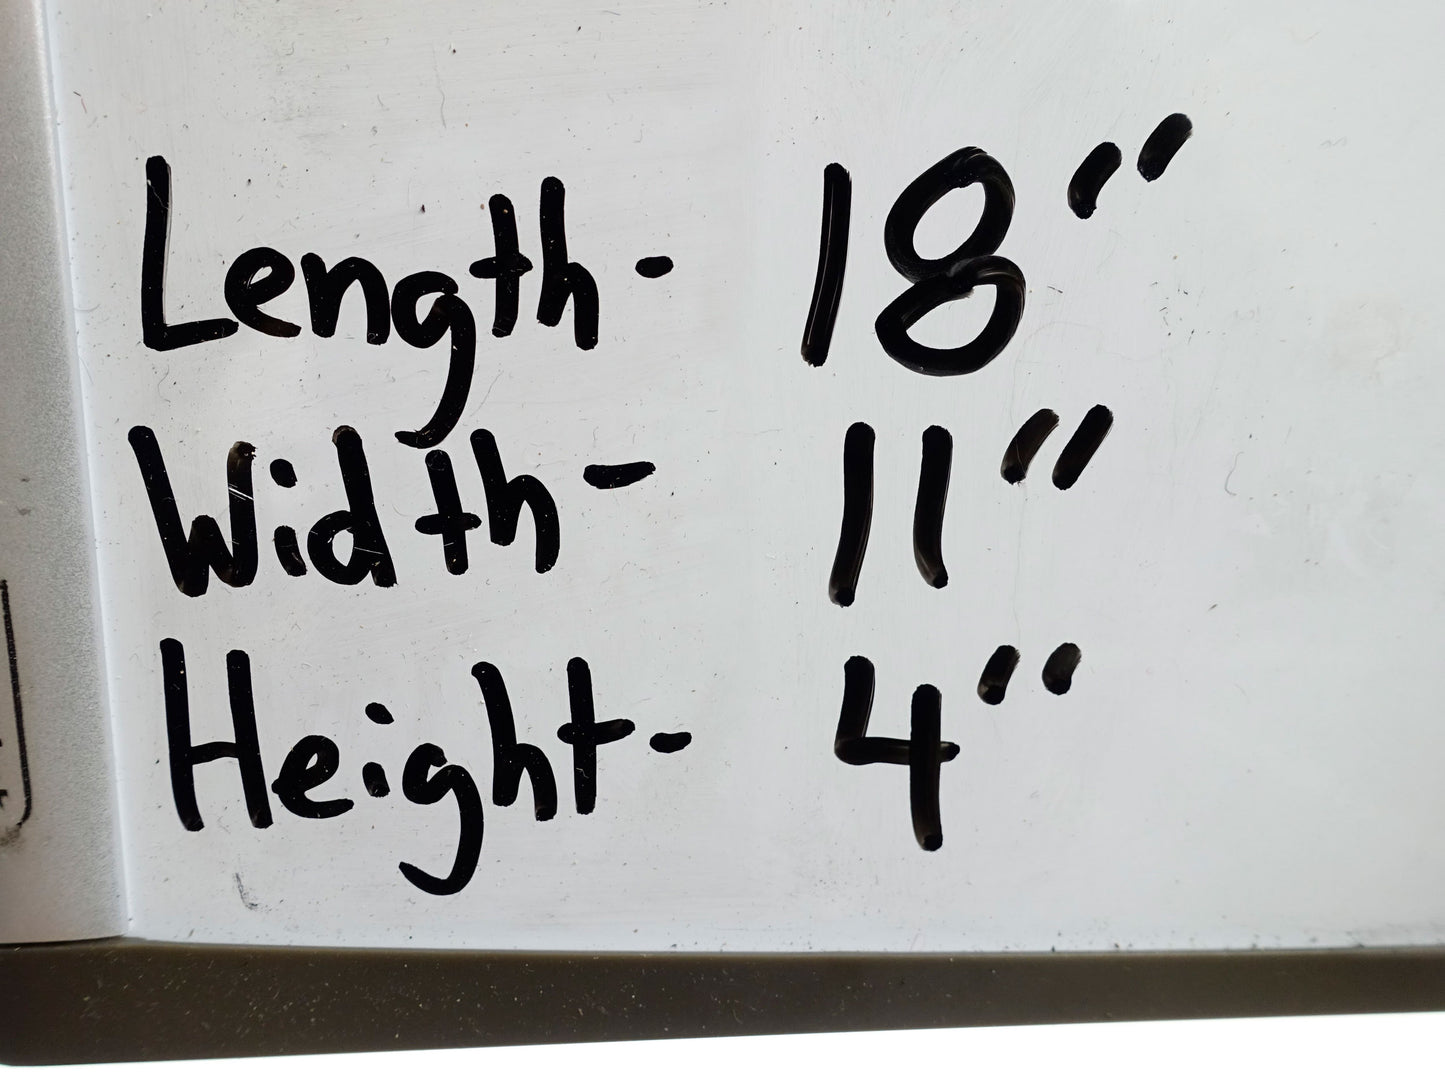 Length- 18"
Width- 11"
Height- 4"